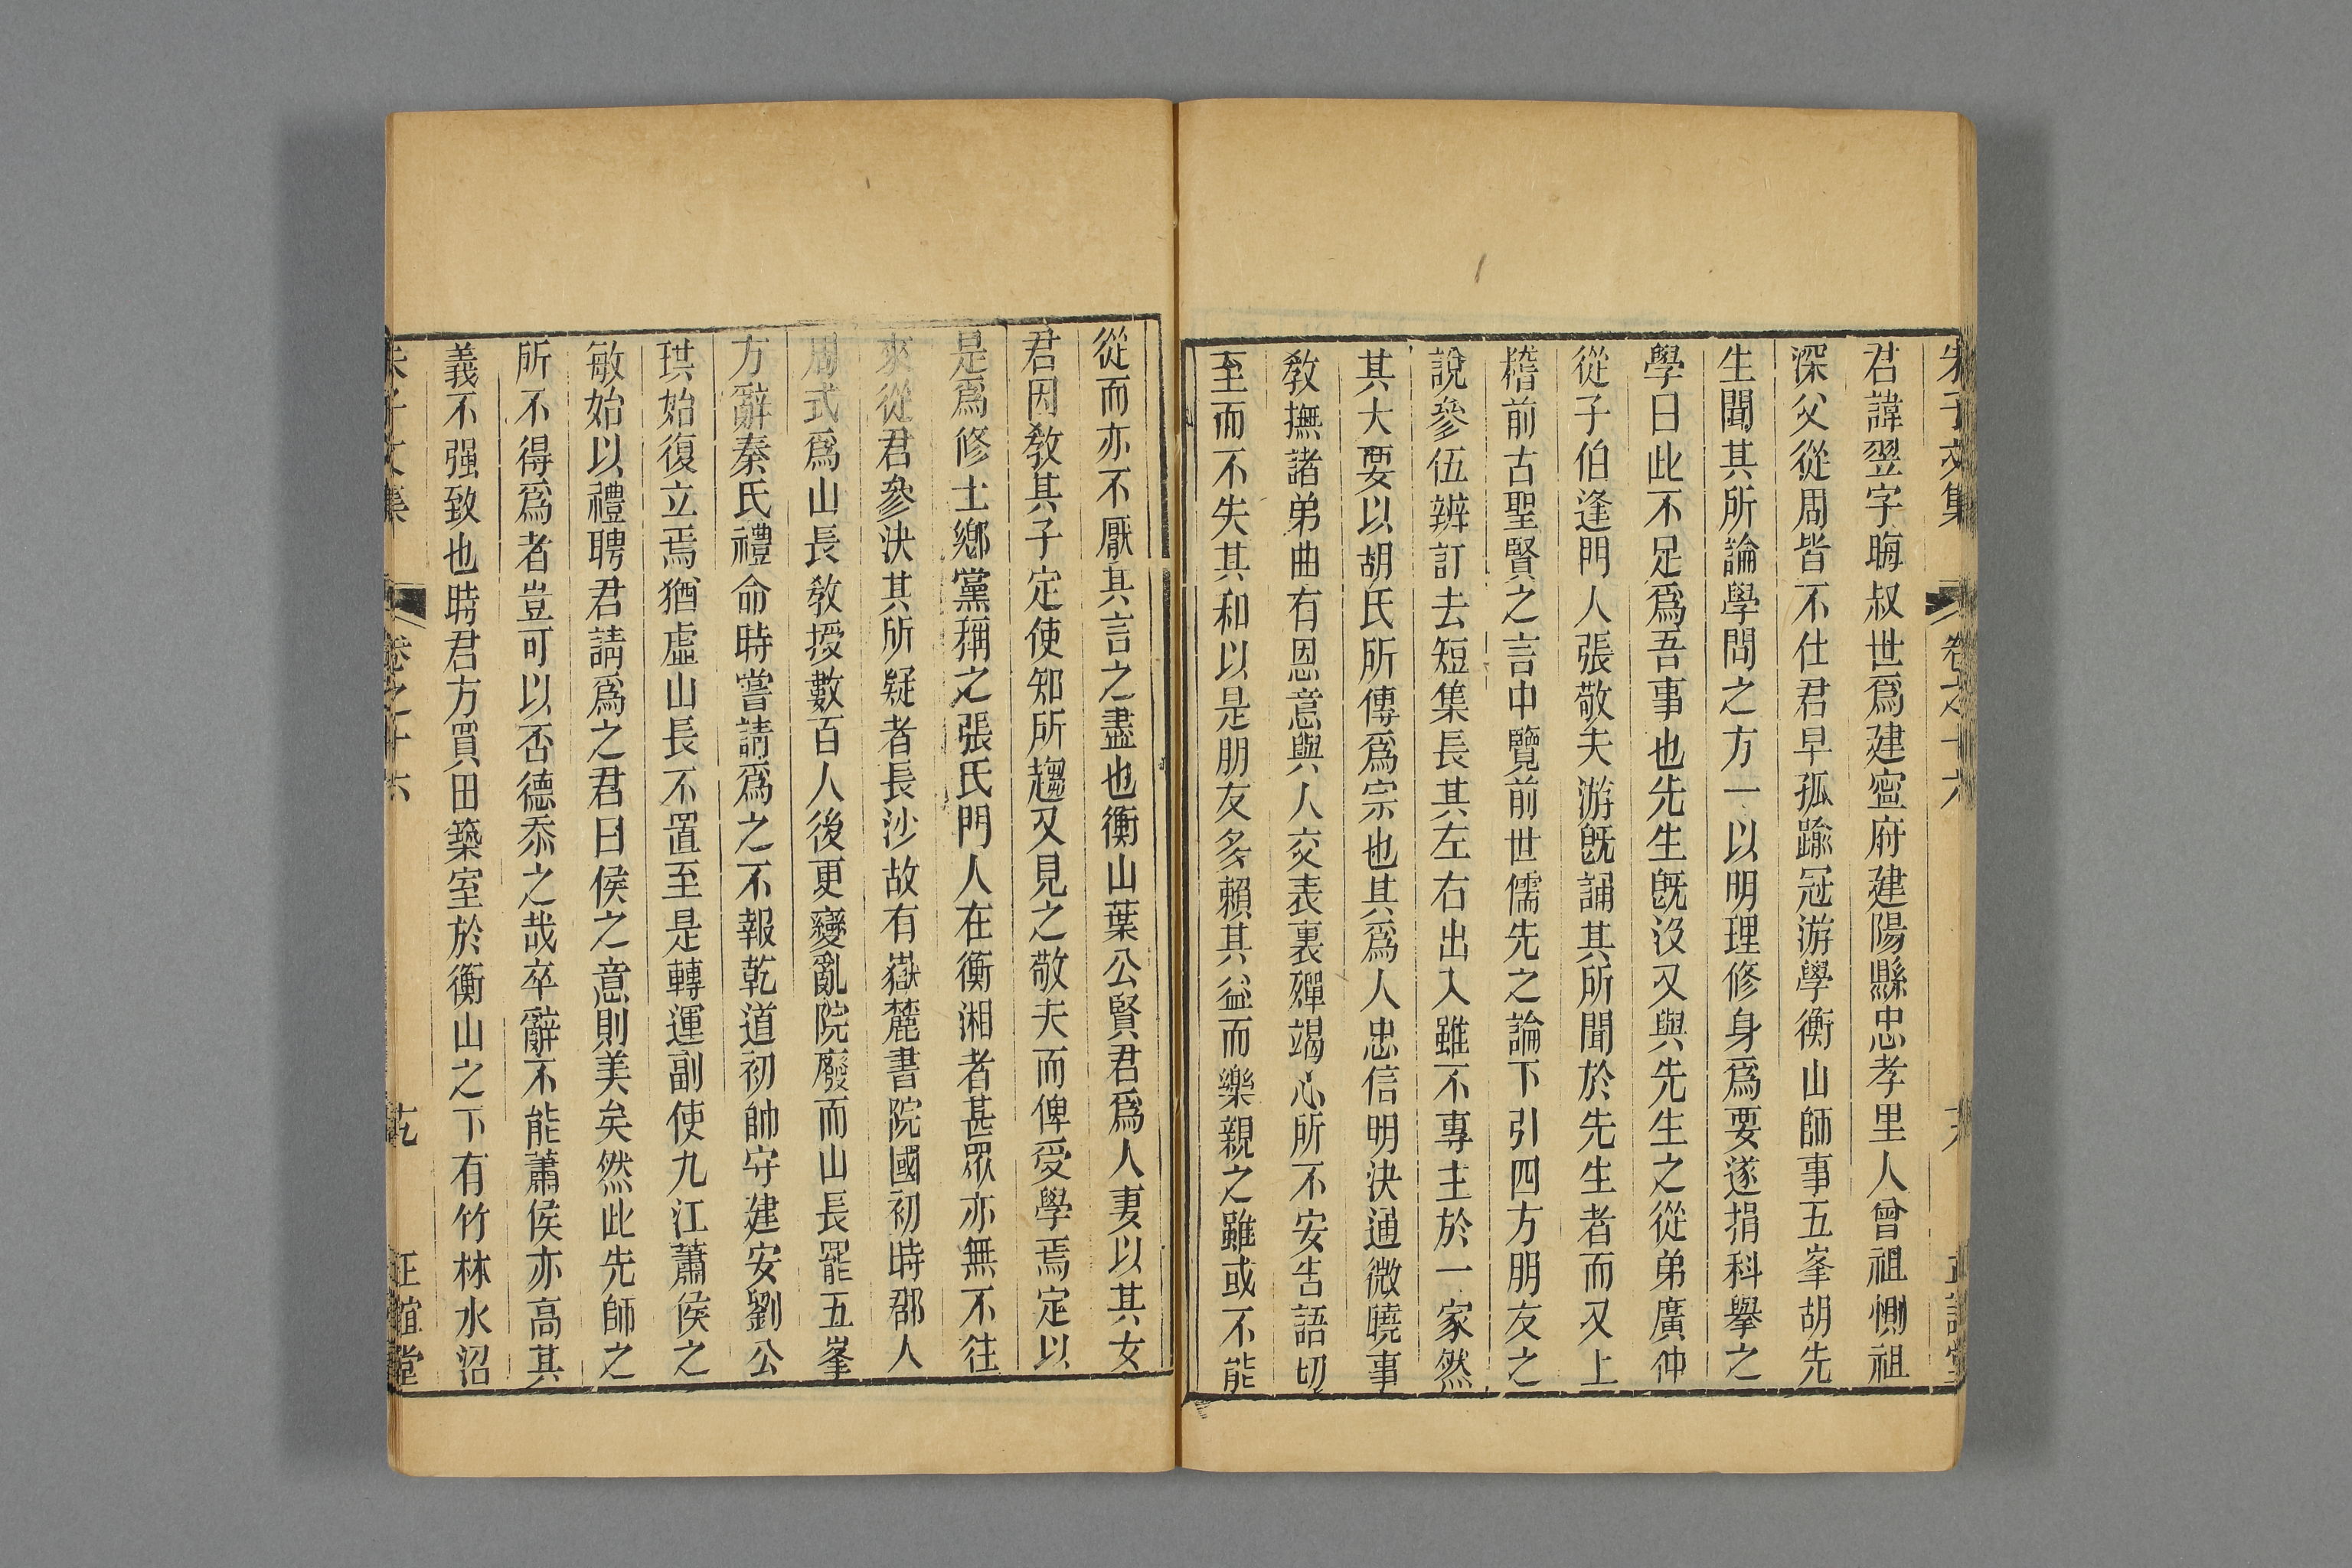 朱子文集 卷之十六 六 正誼堂
君諱翌字晦叔世爲建寧府建陽縣忠孝里人曾祖惻祖
深父從周皆不仕君早孤踰冠游學衡山師事五峯胡先
生聞其所論學問之方一以明理修身爲要遂捐科舉之
學曰此不足爲吾事也先生既沒又與先生之從弟廣仲
從子伯逢門人張敬夫游既誦其所聞於先生者而又上
稽前古聖賢之言中覽前世儒先之論下引四方朋友之
說參伍辨訂去短集長其左右出入雖不專主於一家然
其大要以胡氏所傳爲宗也其爲人忠信明決通微曉事
敎撫諸弟曲有恩意與人交表裏殫竭心所不安吿語切
至而不失其和以是朋友多賴其益而樂親之雖或不能
從而亦不厭其言之盡也衡山葉公賢君爲人妻以其女
君因敎其子定使知所趨又見之敬夫而俾受學焉定以
是爲修士鄉黨稱之張氏門人在衡湘者甚眾亦無不往
來從君參決其所疑者長沙故有嶽麓書院國初時郡人
周式爲山長敎授數百人後更變亂院廢而山長罷五峯
方辭秦氏禮命時嘗請爲之不報乾道初帥守建安劉公
珙始復立焉猶虛山長不置至是轉運副使九江蕭侯之
敏始以禮聘君請爲之君曰侯之意則美矣然此先師之
所不得爲者豈可以否德忝之哉卒辭不能蕭侯亦高其
義不强致也時君方買田築室於衡山之下有竹林水沼
朱子文集 卷之十六 正誼堂